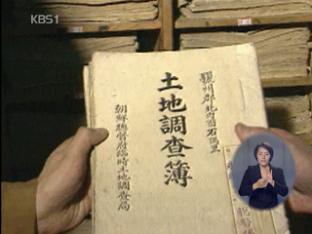 KBS1
驪州郡北內面石隅里
土地調査簿
朝鮮總督府臨時土地調査局